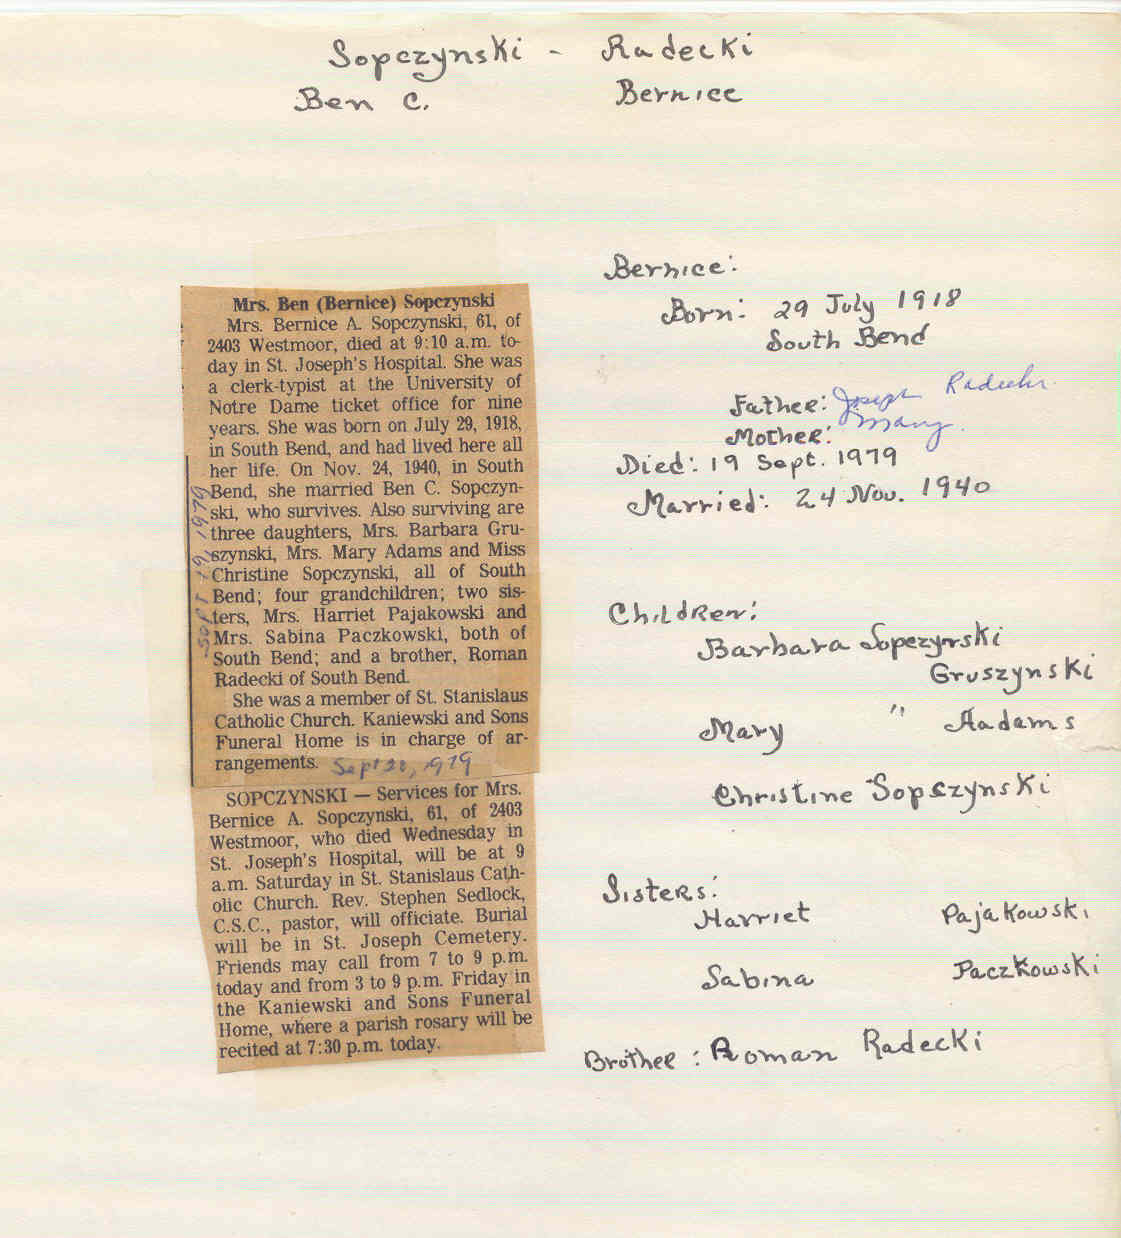 Sopczynski - Radecki
Ben C. Bernice
Mrs. Ben (Bernice) Sopczynski
Mrs. Bernice A. Sopczynski, 61, of
2403 Westmoor, died at 9:10 a.m. to-
day in St. Joseph's Hospital. She was
a clerk-typist at the University of
Notre Dame ticket office for nine
years. She was born on July 29, 1918,
in South Bend, and had lived here all
her life. On Nov. 24, 1940, in South
Bend, she married Ben C. Sopczyn-
ski, who survives. Also surviving are
three daughters, Mrs. Barbara Gru-
szynski, Mrs. Mary Adams and Miss
Christine Sopczynski, all of South
Bend; four grandchildren; two sis-
ters, Mrs. Harriet Pajakowski and
Mrs. Sabina Paczkowski, both of
South Bend; and a brother, Roman
Radecki of South Bend.
She was a member of St. Stanislaus
Catholic Church. Kaniewski and Sons
Funeral Home is in charge of ar-
rangements.
Sept 19, 1979
Sept 20, 1979
SOPCZYNSKI — Services for Mrs.
Bernice A. Sopczynski, 61, of 2403
Westmoor, who died Wednesday in
St. Joseph's Hospital, will be at 9
a.m. Saturday in St. Stanislaus Cath-
olic Church. Rev. Stephen Sedlock,
C.S.C., pastor, will officiate. Burial
will be in St. Joseph Cemetery.
Friends may call from 7 to 9 p.m.
today and from 3 to 9 p.m. Friday in
the Kaniewski and Sons Funeral
Home, where a parish rosary will be
recited at 7:30 p.m. today.
Bernice:
Born: 29 July 1918
South Bend
Father: Joseph Radecki
Mother: Mary
Died: 19 Sept. 1979
Married: 24 Nov. 1940
Children:
Barbara Sopczynski
Gruszynski
Mary " Aadams
Christine Sopszynski
Sisters:
Harriet Pajakowski
Sabina Paczkowski
Brother: Roman Radecki